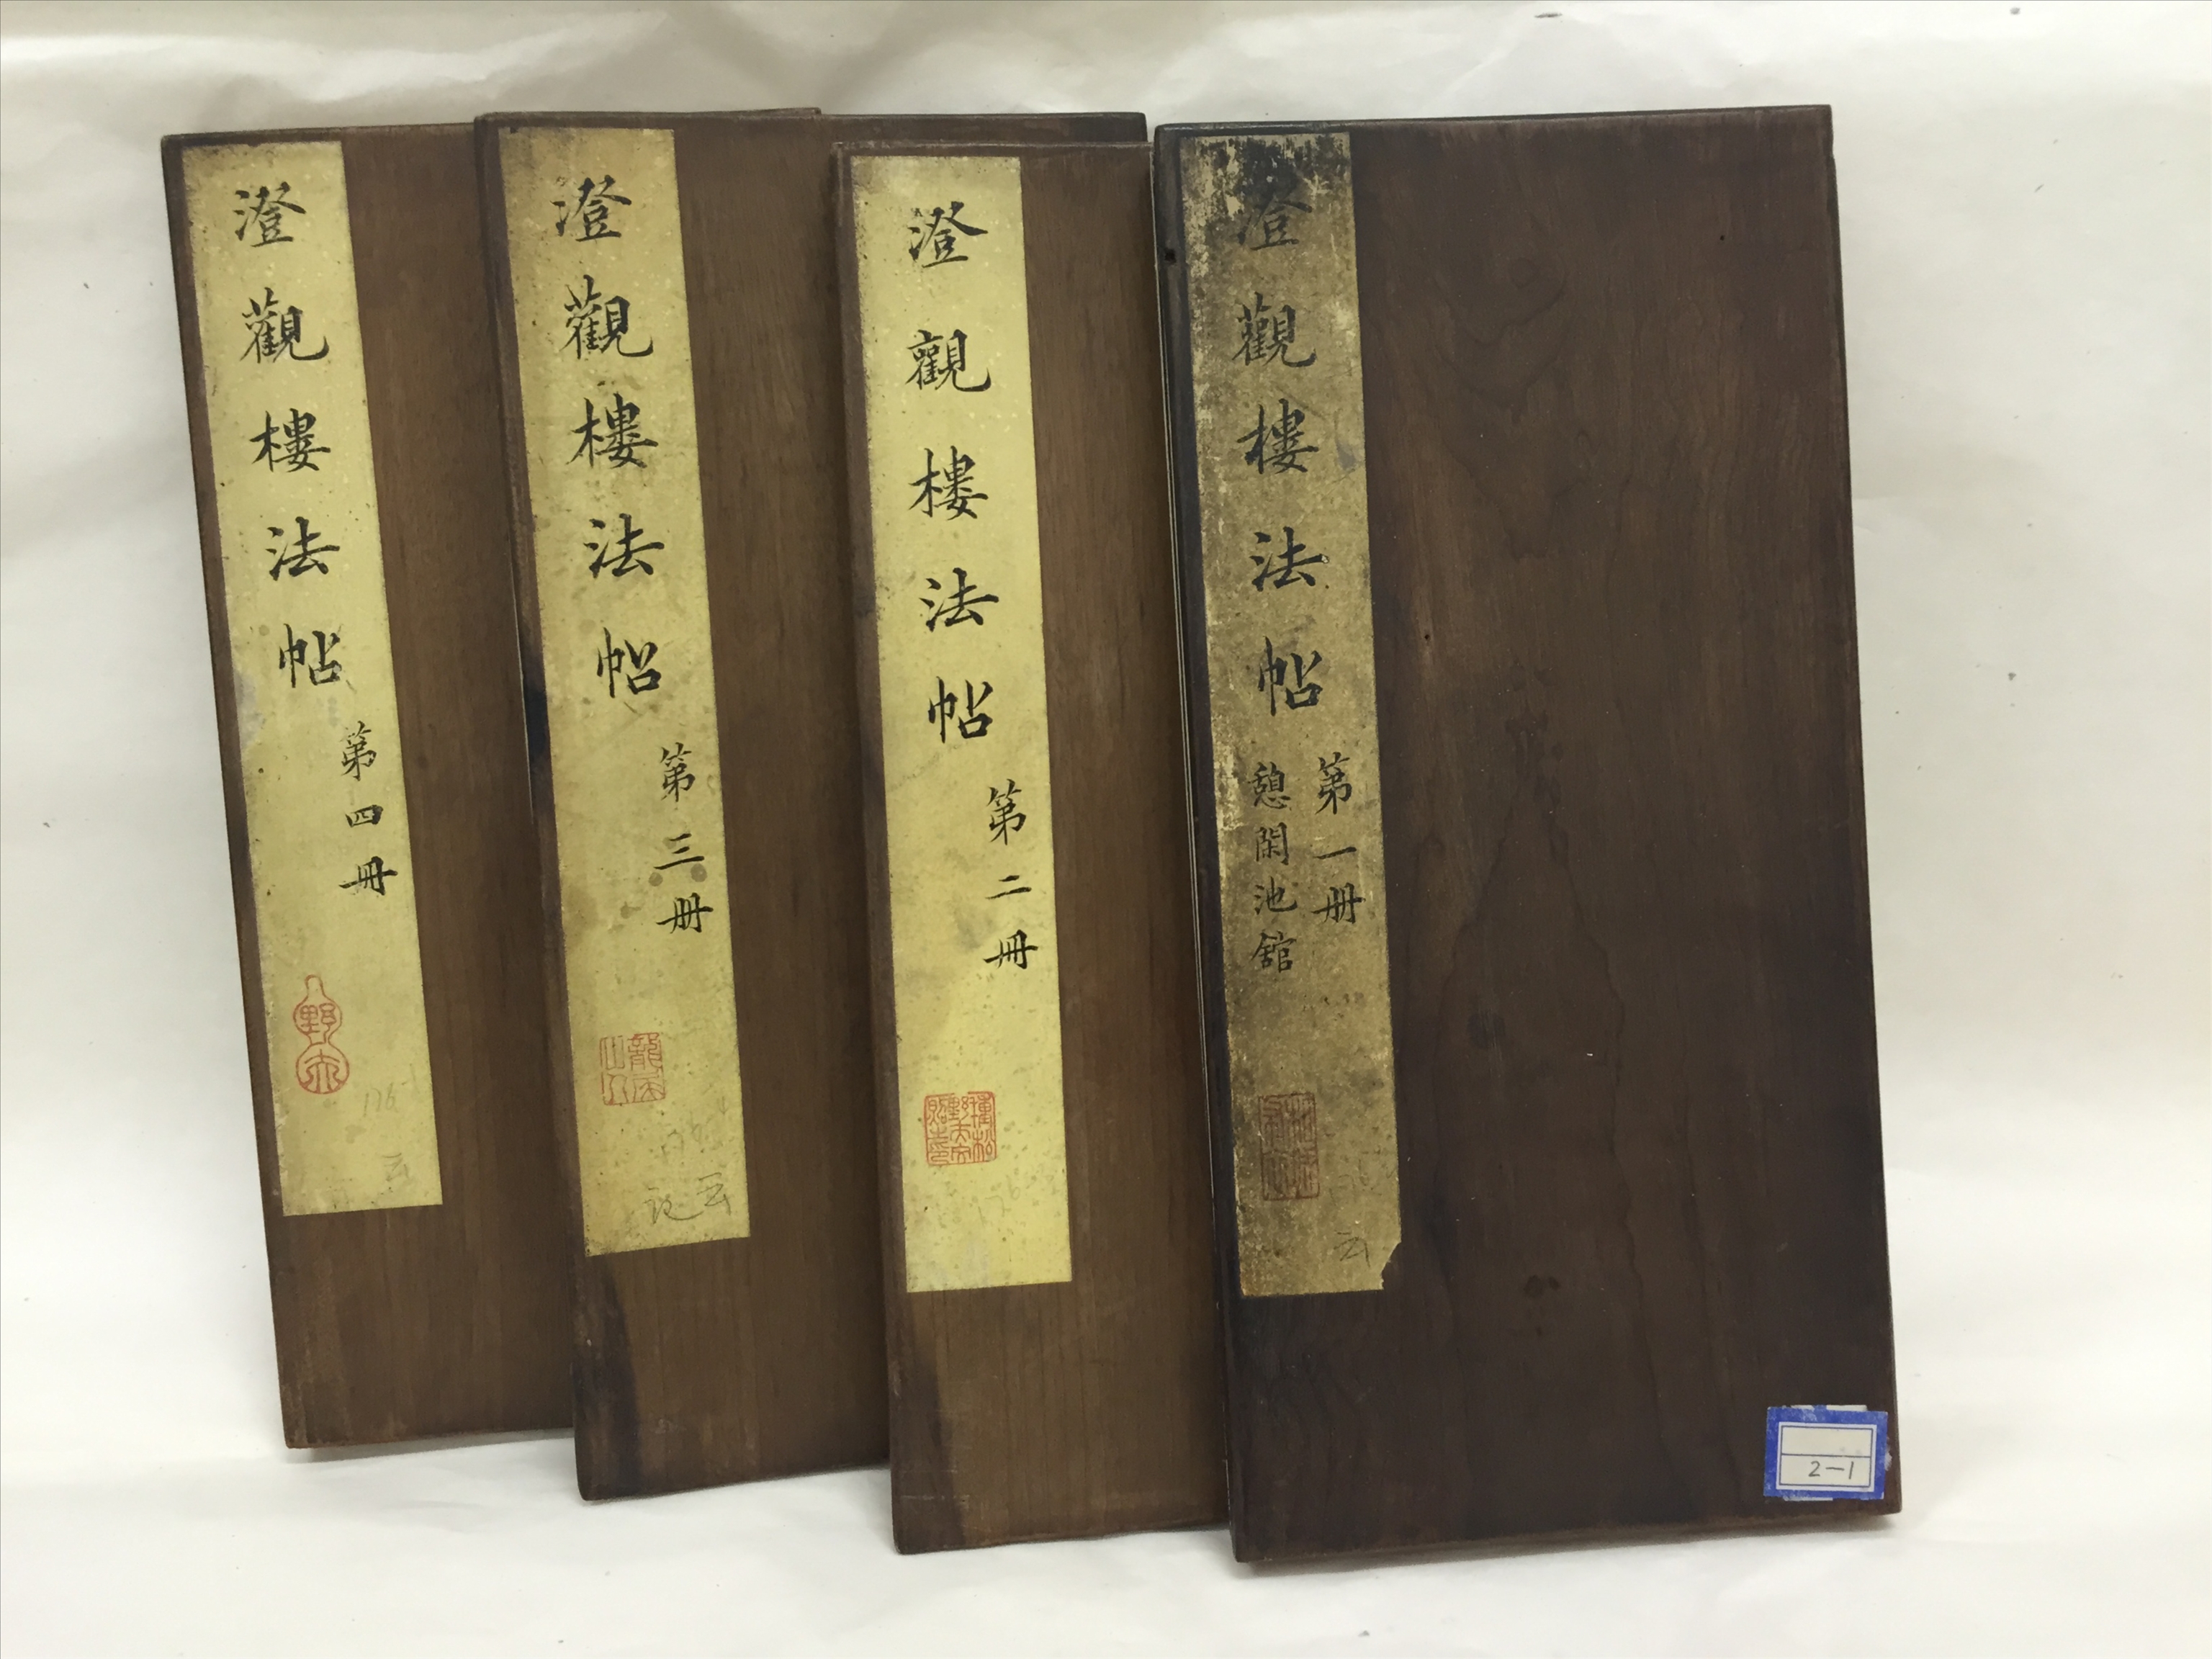 澄觀樓法帖
第一册
憩閑池舘
2-1
澄觀樓法帖
第二冊
澄觀樓法帖
第三册
澄觀樓法帖
第四冊